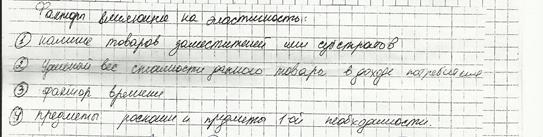 Факторы влияющие на эластичность:
① наличие товаров заместителей или субстратов
② Удельный вес стоимости данного товара в доходе потребителя
③ фактор времени
④ предметы роскоши и предметы 1-ой необходимости.